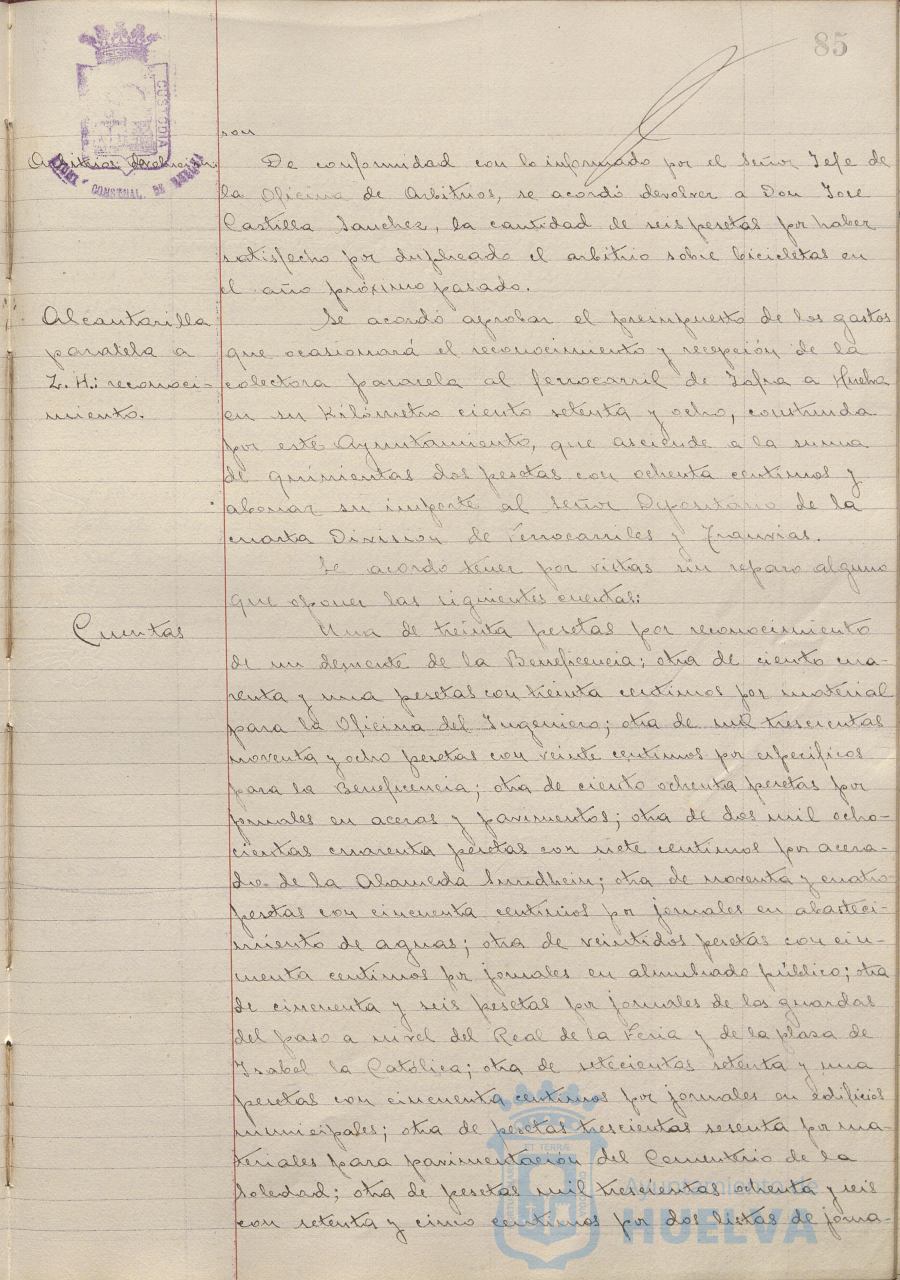 85
CUSTODIA
CONSTNAL. DE HUELVA
son
Arbitrios devolución
De conformidad con lo informado por el Señor Jefe de
la Oficina de Arbitrios, se acordó devolver a Don José
Castilla Sanchez, la cantidad de seis pesetas por haber
satisfecho por duplicado el arbitrio sobre bicicletas en
el año próximo pasado.
Alcantarilla
paralela a
Z. H.: reconoci-
miento.
Se acordó aprobar el presupuesto de los gastos
que ocasionará el reconocimiento y recepción de la
colectora paralela al ferrocarril de Zafra a Huelva
en su Kilómetro ciento setenta y ocho, construida
por este Ayuntamiento, que asciende a la suma
de quinientas dos pesetas con ochenta centimos y
abonar su importe al Señor Depositario de la
cuarta Division de Ferrocarriles y Tranvias.
Se acordo tener por vistas sin reparo alguno
que oponer las siguientes cuentas:
Cuentas
Una de treinta pesetas por reconocimiento
de un demente de la Beneficencia; otra de ciento cua-
renta y una pesetas con treinta centimos por material
para la Oficina del Ingeniero; otra de mil trescientas
noventa y ocho pesetas con veinte centimos por especificos
para la Beneficencia; otra de ciento ochenta pesetas por
jornales en aceras y pavimentos; otra de dos mil ocho-
cientas cuarenta pesetas con siete centimos por acera-
do de la Alameda Sundhein; otra de noventa y cuatro
pesetas con cincuenta centimos por jornales en abasteci-
miento de aguas; otra de veintidos pesetas con cin-
cuenta centimos por jornales en alumbrado público; otra
de cincuenta y seis pesetas por jornales de los guardas
del paso a nivel del Real de la Feria y de la plaza de
Isabel la Católica; otra de setecientos setenta y una
pesetas con cincuenta centimos por jornales en edificios
municipales; otra de pesetas trescientas sesenta por ma-
teriales para pavimentación del Cementerio de la
Soledad; otra de pesetas mil trescientas ochenta y seis
con setenta y cinco centimos por dos listas de jorna-
Ayuntamiento de
HUELVA